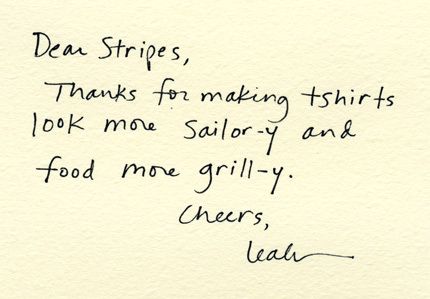 Dear Stripes,
Thanks for making tshirts
look more sailor-y and
food more grill-y.
Cheers,
Leah